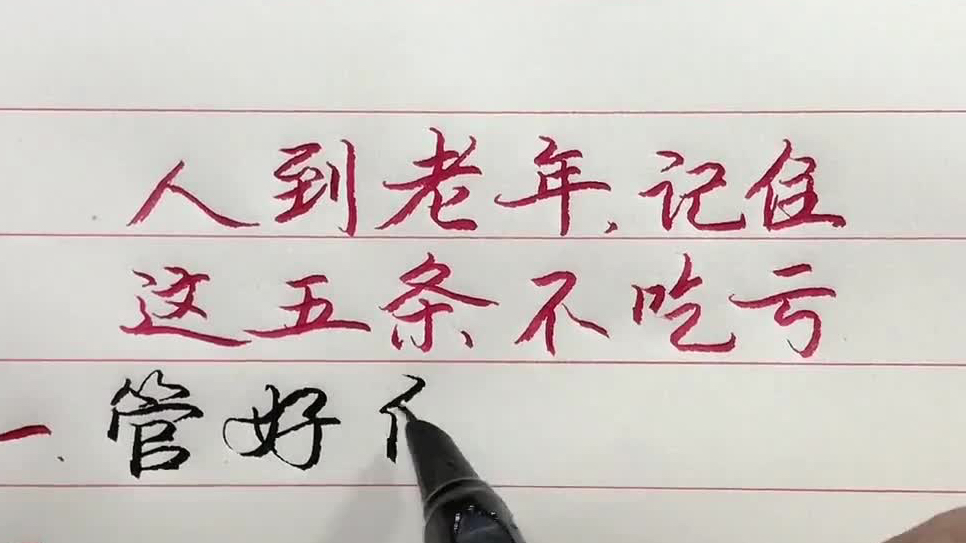 人到老年、记住
这五条不吃亏
一、管好